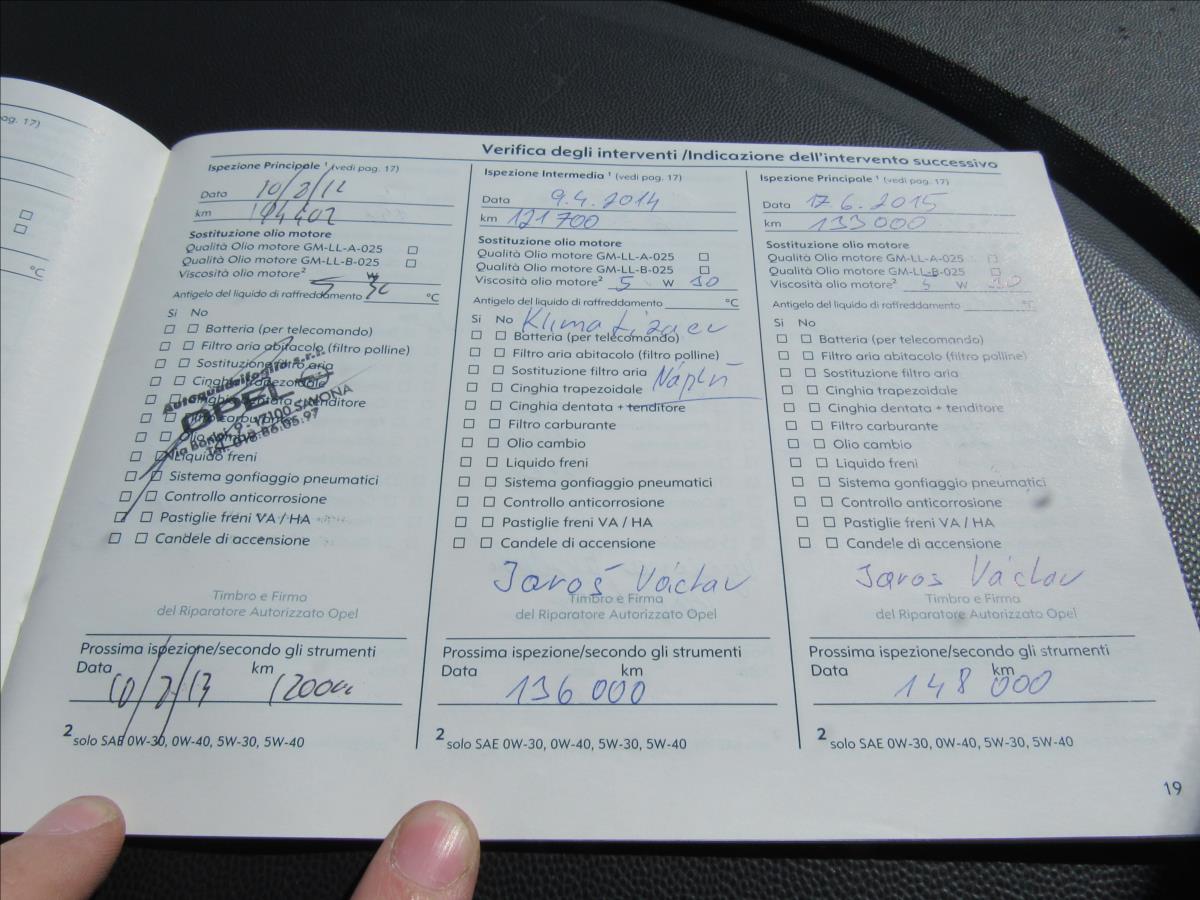 ag. 17)
°C
Verifica degli interventi /Indicazione dell'intervento successivo
Ispezione Principale ¹ (vedi pag. 17)
Data 10/
km
Sostituzione olio motore
Qualità Olio motore GM-LL-A-025 □
Qualità Olio motore GM-LL-B-025 □
Viscosità olio motore² 5 W
Antigelo del liquido di raffreddamento °C
Si No
□ □ Batteria (per telecomando)
□ □ Filtro aria abitacolo (filtro polline)
□ □ Sostituzione filtro aria
□ □ Cinghia trapezoidale
□ □ Cinghia dentata + tenditore
□ □ Filtro carburante
□ □ Olio cambio
□ □ Liquido freni
□ □ Sistema gonfiaggio pneumatici
□ □ Controllo anticorrosione
□ □ Pastiglie freni VA / HA
□ □ Candele di accensione
s.r.l.
OPEL
17100 SAVONA
Timbro e Firma
del Riparatore Autorizzato Opel
Prossima ispezione/secondo gli strumenti
Data km
² solo SAE 0W-30, 0W-40, 5W-30, 5W-40
Ispezione Intermedia ¹ (vedi pag. 17)
Data 9.4.2014
km 121700
Sostituzione olio motore
Qualità Olio motore GM-LL-A-025 □
Qualità Olio motore GM-LL-B-025 □
Viscosità olio motore² 5 W
Antigelo del liquido di raffreddamento °C
Si No
□ □ Batteria (per telecomando)
□ □ Filtro aria abitacolo (filtro polline)
□ □ Sostituzione filtro aria
□ □ Cinghia trapezoidale
□ □ Cinghia dentata + tenditore
□ □ Filtro carburante
□ □ Olio cambio
□ □ Liquido freni
□ □ Sistema gonfiaggio pneumatici
□ □ Controllo anticorrosione
□ □ Pastiglie freni VA / HA
□ □ Candele di accensione
Jaroš Václav
Timbro e Firma
del Riparatore Autorizzato Opel
Prossima ispezione/secondo gli strumenti
Data km
136 000
² solo SAE 0W-30, 0W-40, 5W-30, 5W-40
Ispezione Principale ¹ (vedi pag. 17)
Data 17 6. 2015
km 133000
Sostituzione olio motore
Qualità Olio motore GM-LL-A-025 □
Qualità Olio motore GM-LL-B-025 □
Viscosità olio motore² 5 W
Antigelo del liquido di raffreddamento °C
Si No
□ □ Batteria (per telecomando)
□ □ Filtro aria abitacolo (filtro polline)
□ □ Sostituzione filtro aria
□ □ Cinghia trapezoidale
□ □ Cinghia dentata + tenditore
□ □ Filtro carburante
□ □ Olio cambio
□ □ Liquido freni
□ □ Sistema gonfiaggio pneumatici
□ □ Controllo anticorrosione
□ □ Pastiglie freni VA / HA
□ □ Candele di accensione
Jaros Václav
Timbro e Firma
del Riparatore Autorizzato Opel
Prossima ispezione/secondo gli strumenti
Data km
148 000
² solo SAE 0W-30, 0W-40, 5W-30, 5W-40
19